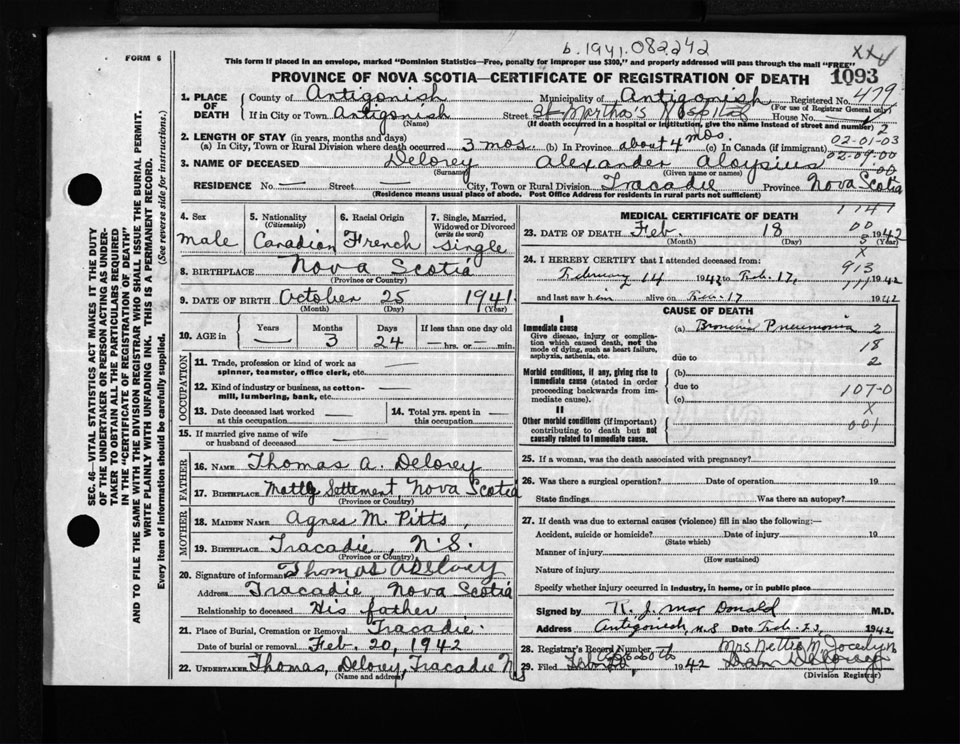 b. 1941.082242
xx4
FORM 6
This form if placed in an envelope, marked "Dominion Statistics—Free, penalty for improper use $300," and properly addressed will pass through the mail "FREE"
PROVINCE OF NOVA SCOTIA—CERTIFICATE OF REGISTRATION OF DEATH
1093
1. PLACE OF DEATH
County of Antigonish Municipality of Antigonish Registered No. 479
(For use of Registrar General only)
If in City or Town Antigonish Street St. Martha's Hospital House No.
(Name) (If death occurred in a hospital or institution, give the name instead of street and number)
2
2. LENGTH OF STAY (in years, months and days)
(a) In City, Town or Rural Division where death occurred 3 mos. (b) In Province about 4 mos. (c) In Canada (if immigrant)
02-01-03
02-09-00
3. NAME OF DECEASED Delorey Alexander Aloysius
(Surname) (Given name or names)
00
RESIDENCE No. — Street — City, Town or Rural Division Tracadie Province Nova Scotia
(Residence means usual place of abode. Post Office Address for residents in rural parts not sufficient)
4. Sex
male
5. Nationality (Citizenship)
Canadian
6. Racial Origin
French
7. Single, Married, Widowed or Divorced (write the word)
single
8. BIRTHPLACE Nova Scotia
(Province or Country)
9. DATE OF BIRTH October 25 1941
(Month) (Day) (Year)
10. AGE in
Years Months Days If less than one day old
— 3 24 — hrs. or — min.
OCCUPATION
11. Trade, profession or kind of work as spinner, teamster, office clerk, etc. —
12. Kind of industry or business, as cotton-mill, lumbering, bank, etc. —
13. Date deceased last worked at this occupation —
14. Total yrs. spent in this occupation —
15. If married give name of wife or husband of deceased —
FATHER
16. NAME Thomas A. Delorey
17. BIRTHPLACE Settement, Nova Scotia
(Province or Country)
MOTHER
18. MAIDEN NAME Agnes M. Pitts,
19. BIRTHPLACE Tracadie, N.S.
(Province or Country)
20. Signature of informant Thomas A Delorey
Address Tracadie, Nova Scotia
Relationship to deceased His father
21. Place of Burial, Cremation or Removal Tracadie.
Date of burial or removal Feb. 20, 1942
22. UNDERTAKER Thomas, Delorey, Tracadie N
(Name and address)
MEDICAL CERTIFICATE OF DEATH
23. DATE OF DEATH Feb. 18 1942
(Month) (Day) (Year)
00
5
24. I HEREBY CERTIFY that I attended deceased from:
February 14 1942 to Feb. 17, 1942
x
913
111
and last saw him alive on Feb. 17 1942
CAUSE OF DEATH
I
Immediate cause
Give disease, injury or complication which caused death, not the mode of dying, such as heart failure, asphyxia, asthenia, etc.
(a) Bronchial Pneumonia 2
18
due to 2
Morbid conditions, if any, giving rise to immediate cause (stated in order proceeding backwards from immediate cause).
(b)
due to 107-0
(c)
x
II
Other morbid conditions (if important) contributing to death but not causally related to immediate cause.
001
25. If a woman, was the death associated with pregnancy?
26. Was there a surgical operation? Date of operation 19
State findings Was there an autopsy?
27. If death was due to external causes (violence) fill in also the following:
Accident, suicide or homicide? Date of injury 19
(State which)
Manner of injury
(How sustained)
Nature of injury
Specify whether injury occurred in industry, in home, or in public place
Signed by R. J. Mac Donald M.D.
Address Antigonish, N.S Date Feb. 23, 1942
28. Registrar's Record Number Mrs Nettie M.
29. Filed 1942 Sam Delorey
(Division Registrar)
SEC. 46—VITAL STATISTICS ACT MAKES IT THE DUTY OF THE UNDERTAKER OR PERSON ACTING AS UNDERTAKER TO OBTAIN ALL THE PARTICULARS REQUIRED IN THE "CERTIFICATE OF REGISTRATION OF DEATH" AND TO FILE THE SAME WITH THE DIVISION REGISTRAR WHO SHALL ISSUE THE BURIAL PERMIT.
WRITE PLAINLY WITH UNFADING INK. THIS IS A PERMANENT RECORD.
Every item of information should be carefully supplied. (See reverse side for instructions.)